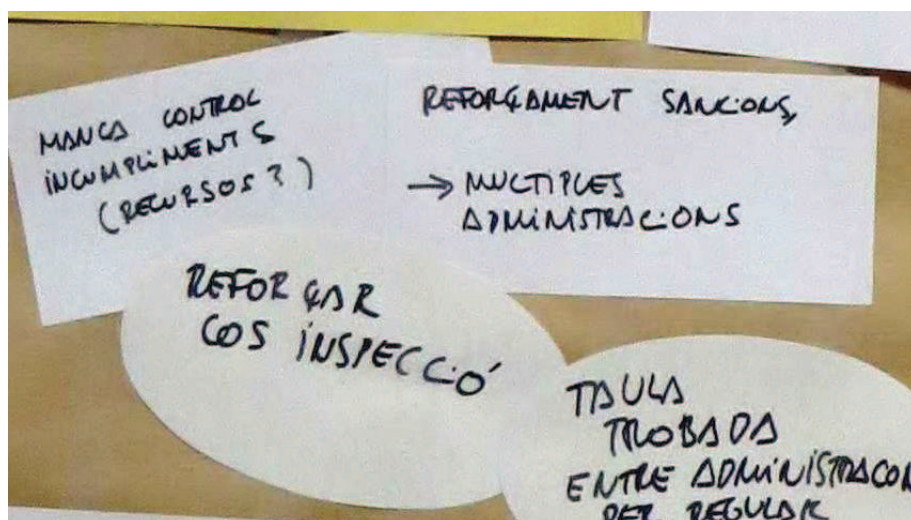 MANCA CONTROL
INCUMPLIMENTS
(RECURSOS?)
REFORÇAMENT SANCIONS,
→ MULTIPLES
ADMINISTRACIONS
REFORÇAR
COS INSPECCIÓ
TAULA
TROBADA
ENTRE ADMINISTRACION
PER REGULAR